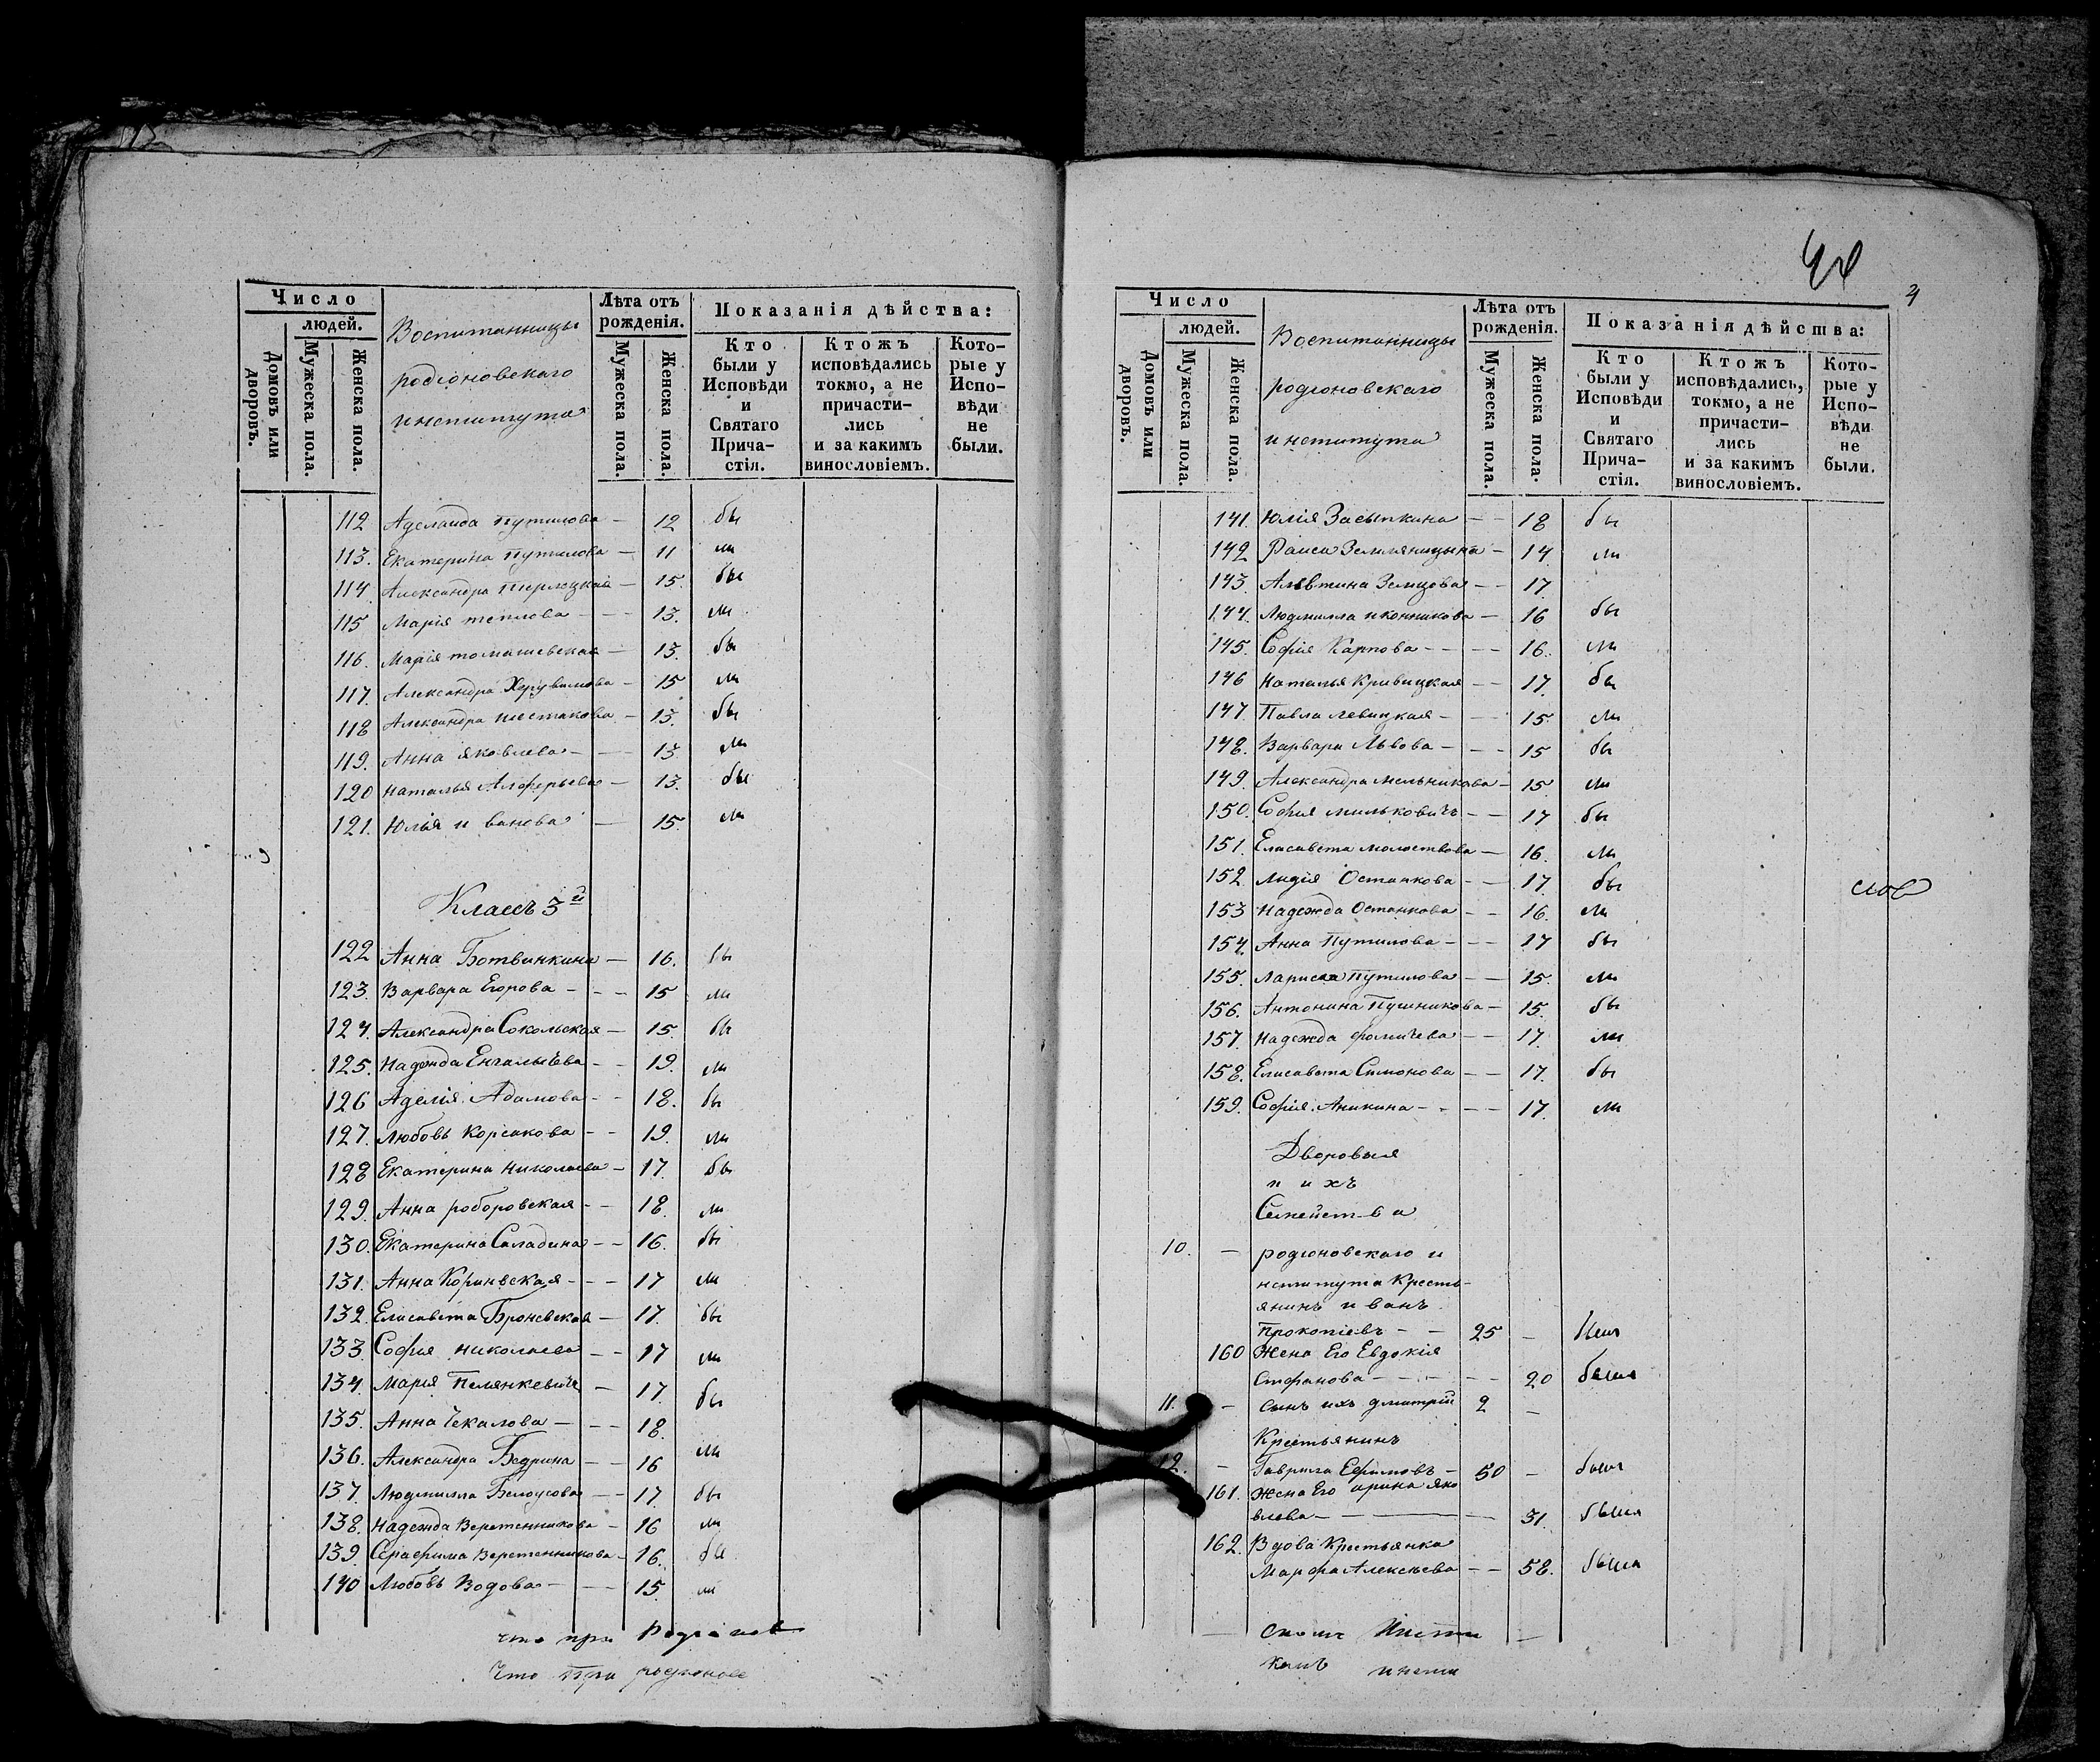 Число
людей.
Домовъ или дворовъ.
Мужеска пола.
Женска пола.
Воспитанницы
родіоновскаго
института
Лѣта отъ рожденія.
Мужеска пола.
Женска пола.
Показанія дѣйства:
Кто были у Исповѣди и Святаго Прича-стія.
Ктожъ исповѣдались токмо, а не причасти-лись и за какимъ винословіемъ.
Кото-рые у Испо-вѣди не были.
112 Аделаида Путилова — 12 бы
113. Екатерина Путилова — 11 ли
114. Александра Терлецкая — 15. бы
115 Марія теплова — — 13. ли
116. Марія томашевская — 13. бы
117. Александра Херувимова — 15 ли
118 Александра шестакова — 13. бы
119. Анна яковлева — — 13 ли
120 Наталья Алферьева — 13. бы
121. Юлія и ванова — 15. ли
Классъ 3й
122 Анна Ботвинкина — 16. бы
123. Варвара Егорова - - - 15 ли
124. Александра Сокольская — 15. бы
125. Надежда Енгалычева - - 19. ли
126 Аделія Адамова - - 18. бы
127. Любовь Корсакова - - 19. ли
128 Екатерина Николаева — 17. бы
129. Анна роборовская - - 18. ли
130. Екатерина Саладина - - 16. бы
131. Анна Коринвская - - - 17 ли
132. Елисавета Броневская — 17. бы
133. Софія николаева — — 17 ли
134. Марія Пелянкевичъ — 17. бы
135. Анна Чекалова — — — 18.
136. Александра Бедрина — — 16 ли
137. Людмилла Белоусова — — 17. бы
138. Надежда Веретенникова — 16 ли
139. Серафима Веретенникова — 16. бы
140 Любовь Водова — — — 15. ли
что при Родіонов
Что При родіонов
4
Число
людей.
Домовъ или дворовъ.
Мужеска пола.
Женска пола.
Воспитанницы
родіоновскаго
института
Лѣта отъ рожденія.
Мужеска пола.
Женска пола.
Показанія дѣйства:
Кто были у Исповѣди и Святаго Прича-стія.
Ктожъ исповѣдались, токмо, а не причасти-лись и за какимъ винословіемъ.
Кото-рые у Испо-вѣди не были.
141. Юлія Засыпкина — — 18 бы
142 Раиса Земляницына — 14. ли
143. Алевтина Земцова — — 17.
144. Людмилла иконникова — 16 бы
145. Софія Карпова - - - - 16. ли
146 Наталья Кривицкая — — 17. бы
147. Павла левицкая - — 15. ли
148. Варвара Львова — - - 15 бы
149. Александра мельникова — 15 ли
150. Софія милковичъ — — 17 бы
151. Елисавета молоствова — 16. ли
152. Лидія Останкова - — 17. бы
153 Надежда Останкова — — 16. ли
154. Анна Путилова - - - - 17 бы
155. Лариса Путилова — — 15. ли
156. Антонина Пушникова — 15. бы
157. Надежда фомичева — — 17. ли
158. Елисавета Симонова — — 17. бы
159. Софія. Аникина - - - - 17. ли
Дворовыя
и ихъ
Семейст-ва
10. — родіоновскаго и
нститута Кресть-
янинъ и ванъ
Прокопіевъ - — 25 —
160 Жена Его Евдокія
Стефанова - - - - - 20 была
11. — сынъ ихъ дмитрій 2 —
Крестьянинъ
12. — Гаврила Ефимовъ — 50 — былъ
161. Жена Его арина яко
влева — — — 51. была
162. Вдова Крестьянка
Марфа Алексеева - — 58. была
скомъ Инсти
инсти